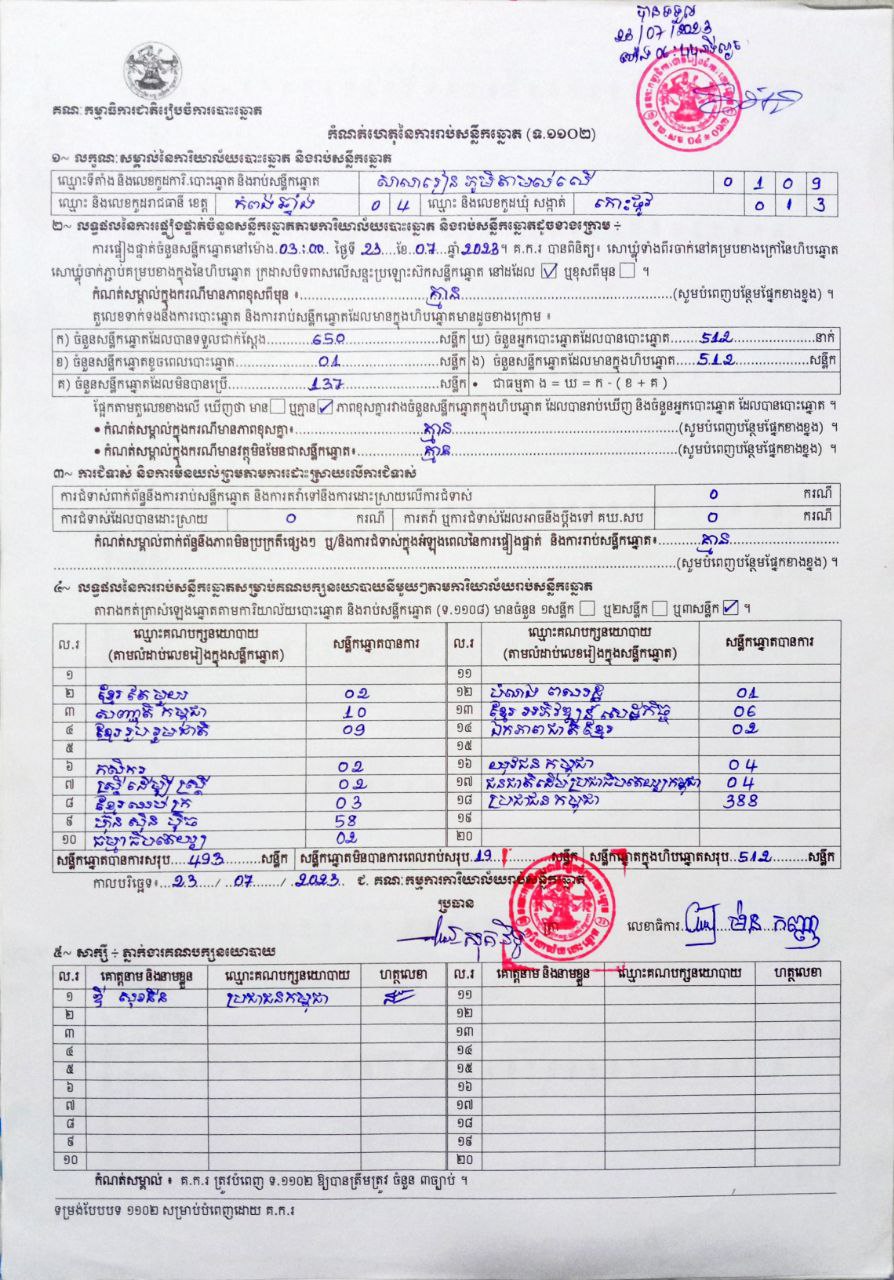 បានទទួល
23/07/2023
គណៈកម្មាធិការជាតិរៀបចំការបោះឆ្នោត
កំណត់ហេតុនៃការរាប់សន្លឹកឆ្នោត (ទ.១១០២)
១~ លក្ខណៈសម្គាល់នៃការិយាល័យបោះឆ្នោត និងរាប់សន្លឹកឆ្នោត
ឈ្មោះទីតាំង និងលេខកូដការិ.បោះឆ្នោត និងរាប់សន្លឹកឆ្នោត សាលារៀន ភូមិតាមល់លើ 0 1 0 9
ឈ្មោះ និងលេខកូដរាជធានី ខេត្ត កំពង់ឆ្នាំង 0 4 ឈ្មោះ និងលេខកូដឃុំ សង្កាត់ កោះថ្កូវ 0 1 3
២~ លទ្ធផលនៃការផ្ទៀងផ្ទាត់ចំនួនសន្លឹកឆ្នោតតាមការិយាល័យបោះឆ្នោត និងរាប់សន្លឹកឆ្នោតដូចខាងក្រោម ÷
ការផ្ទៀងផ្ទាត់ចំនួនសន្លឹកឆ្នោតនៅម៉ោង.03:00. ថ្ងៃទី 23...ខែ.07...ឆ្នាំ2023។ គ.ក.រ បានពិនិត្យ៖ សោឃ្លុំទាំងពីរចាក់នៅគម្របខាងក្រៅនៃហិបឆ្នោត
សោឃ្លុំចាក់ភ្ជាប់គម្របខាងក្នុងនៃហិបឆ្នោត ក្រដាសបិទពាសលើសន្ទះប្រឡោះសិកសន្លឹកឆ្នោត នៅដដែល ☑ ឬខុសពីមុន ☐ ។
កំណត់សម្គាល់ក្នុងករណីមានភាពខុសពីមុន ៖ គ្មាន (សូមបំពេញបន្ថែមផ្នែកខាងខ្នង) ។
តួលេខទាក់ទងនឹងការបោះឆ្នោត និងការរាប់សន្លឹកឆ្នោតដែលមានក្នុងហិបឆ្នោតមានដូចខាងក្រោម ៖
ក) ចំនួនសន្លឹកឆ្នោតដែលបានទទួលជាក់ស្តែង 650 សន្លឹក ឃ) ចំនួនអ្នកបោះឆ្នោតដែលបានបោះឆ្នោត 512 នាក់
ខ) ចំនួនសន្លឹកឆ្នោតខូចពេលបោះឆ្នោត 01 សន្លឹក ង) ចំនួនសន្លឹកឆ្នោតដែលមានក្នុងហិបឆ្នោត 512 សន្លឹក
គ) ចំនួនសន្លឹកឆ្នោតដែលមិនបានប្រើ 137 សន្លឹក • ជាធម្មតា ង = ឃ = ក - ( ខ + គ )
ផ្អែកតាមតួលេខខាងលើ ឃើញថា មាន ☐ ឬគ្មាន ☑ ភាពខុសគ្នារវាងចំនួនសន្លឹកឆ្នោតក្នុងហិបឆ្នោត ដែលបានរាប់ឃើញ និងចំនួនអ្នកបោះឆ្នោត ដែលបានបោះឆ្នោត ។
• កំណត់សម្គាល់ក្នុងករណីមានភាពខុសគ្នា៖ គ្មាន (សូមបំពេញបន្ថែមផ្នែកខាងខ្នង) ។
• កំណត់សម្គាល់ក្នុងករណីមានវត្ថុមិនមែនជាសន្លឹកឆ្នោត៖ គ្មាន (សូមបំពេញបន្ថែមផ្នែកខាងខ្នង) ។
៣~ ការជំទាស់ និងការមិនយល់ព្រមតាមការដោះស្រាយលើការជំទាស់
ការជំទាស់ពាក់ព័ន្ធនឹងការរាប់សន្លឹកឆ្នោត និងការតវ៉ាទៅនឹងការដោះស្រាយលើការជំទាស់ 0 ករណី
ការជំទាស់ដែលបានដោះស្រាយ 0 ករណី ការតវ៉ា ឬការជំទាស់ដែលអាចនឹងប្តឹងទៅ គឃ.សប 0 ករណី
កំណត់សម្គាល់ពាក់ព័ន្ធនឹងភាពមិនប្រក្រតីផ្សេងៗ ឬ/និងការជំទាស់ក្នុងអំឡុងពេលនៃការផ្ទៀងផ្ទាត់ និងការរាប់សន្លឹកឆ្នោត៖ គ្មាន
(សូមបំពេញបន្ថែមផ្នែកខាងខ្នង) ។
៤~ លទ្ធផលនៃការរាប់សន្លឹកឆ្នោតសម្រាប់គណបក្សនយោបាយនីមួយៗតាមការិយាល័យរាប់សន្លឹកឆ្នោត
តារាងកត់ត្រាសំឡេងឆ្នោតតាមការិយាល័យបោះឆ្នោត និងរាប់សន្លឹកឆ្នោត (ទ.១១០៨) មានចំនួន ១សន្លឹក ☐ ឬ២សន្លឹក ☐ ឬ៣សន្លឹក ☑ ។
ល.រ ឈ្មោះគណបក្សនយោបាយ សន្លឹកឆ្នោតបានការ ល.រ ឈ្មោះគណបក្សនយោបាយ សន្លឹកឆ្នោតបានការ
(តាមលំដាប់លេខរៀងក្នុងសន្លឹកឆ្នោត) (តាមលំដាប់លេខរៀងក្នុងសន្លឹកឆ្នោត)
១ ១១
២ ខ្មែរតែមួយ 02 ១២ បំណងពលរដ្ឋ 01
៣ សញ្ជាតិកម្ពុជា 10 ១៣ ខ្មែរអភិវឌ្ឍន៍សេដ្ឋកិច្ច 06
៤ ខ្មែររួបរួមជាតិ 09 ១៤ ឯកភាពជាតិខ្មែរ 02
៥ ១៥
៦ កសិករ 02 ១៦ យុវជនកម្ពុជា 04
៧ ស្ត្រីដើម្បីស្ត្រី 02 ១៧ ជនជាតិដើមប្រជាធិបតេយ្យកម្ពុជា 04
៨ ខ្មែរឈប់ក្រ 03 ១៨ ប្រជាជនកម្ពុជា 388
៩ ហ៊្វុនស៊ិនប៉ិច 58 ១៩
១០ ធម្មាធិបតេយ្យ 02 ២០
សន្លឹកឆ្នោតបានការសរុប 493 សន្លឹក សន្លឹកឆ្នោតមិនបានការពេលរាប់សរុប 19 សន្លឹក សន្លឹកឆ្នោតក្នុងហិបឆ្នោតសរុប 512 សន្លឹក
កាលបរិច្ឆេទ៖ 23 / 07 / 2023 ជ. គណៈកម្មការការិយាល័យរាប់សន្លឹកឆ្នោត
ប្រធាន
ត្រា លេខាធិការ ម៉ន កញ្ញា
៥~ សាក្សី ÷ ភ្នាក់ងារគណបក្សនយោបាយ
ល.រ គោត្តនាម និងនាមខ្លួន ឈ្មោះគណបក្សនយោបាយ ហត្ថលេខា ល.រ គោត្តនាម និងនាមខ្លួន ឈ្មោះគណបក្សនយោបាយ ហត្ថលេខា
១ ប្រជាជនកម្ពុជា ១១
២ ១២
៣ ១៣
៤ ១៤
៥ ១៥
៦ ១៦
៧ ១៧
៨ ១៨
៩ ១៩
១០ ២០
កំណត់សម្គាល់ ៖ គ.ក.រ ត្រូវបំពេញ ទ.១១០២ ឱ្យបានត្រឹមត្រូវ ចំនួន ៣ច្បាប់ ។
ទម្រង់បែបបទ ១១០២ សម្រាប់បំពេញដោយ គ.ក.រ